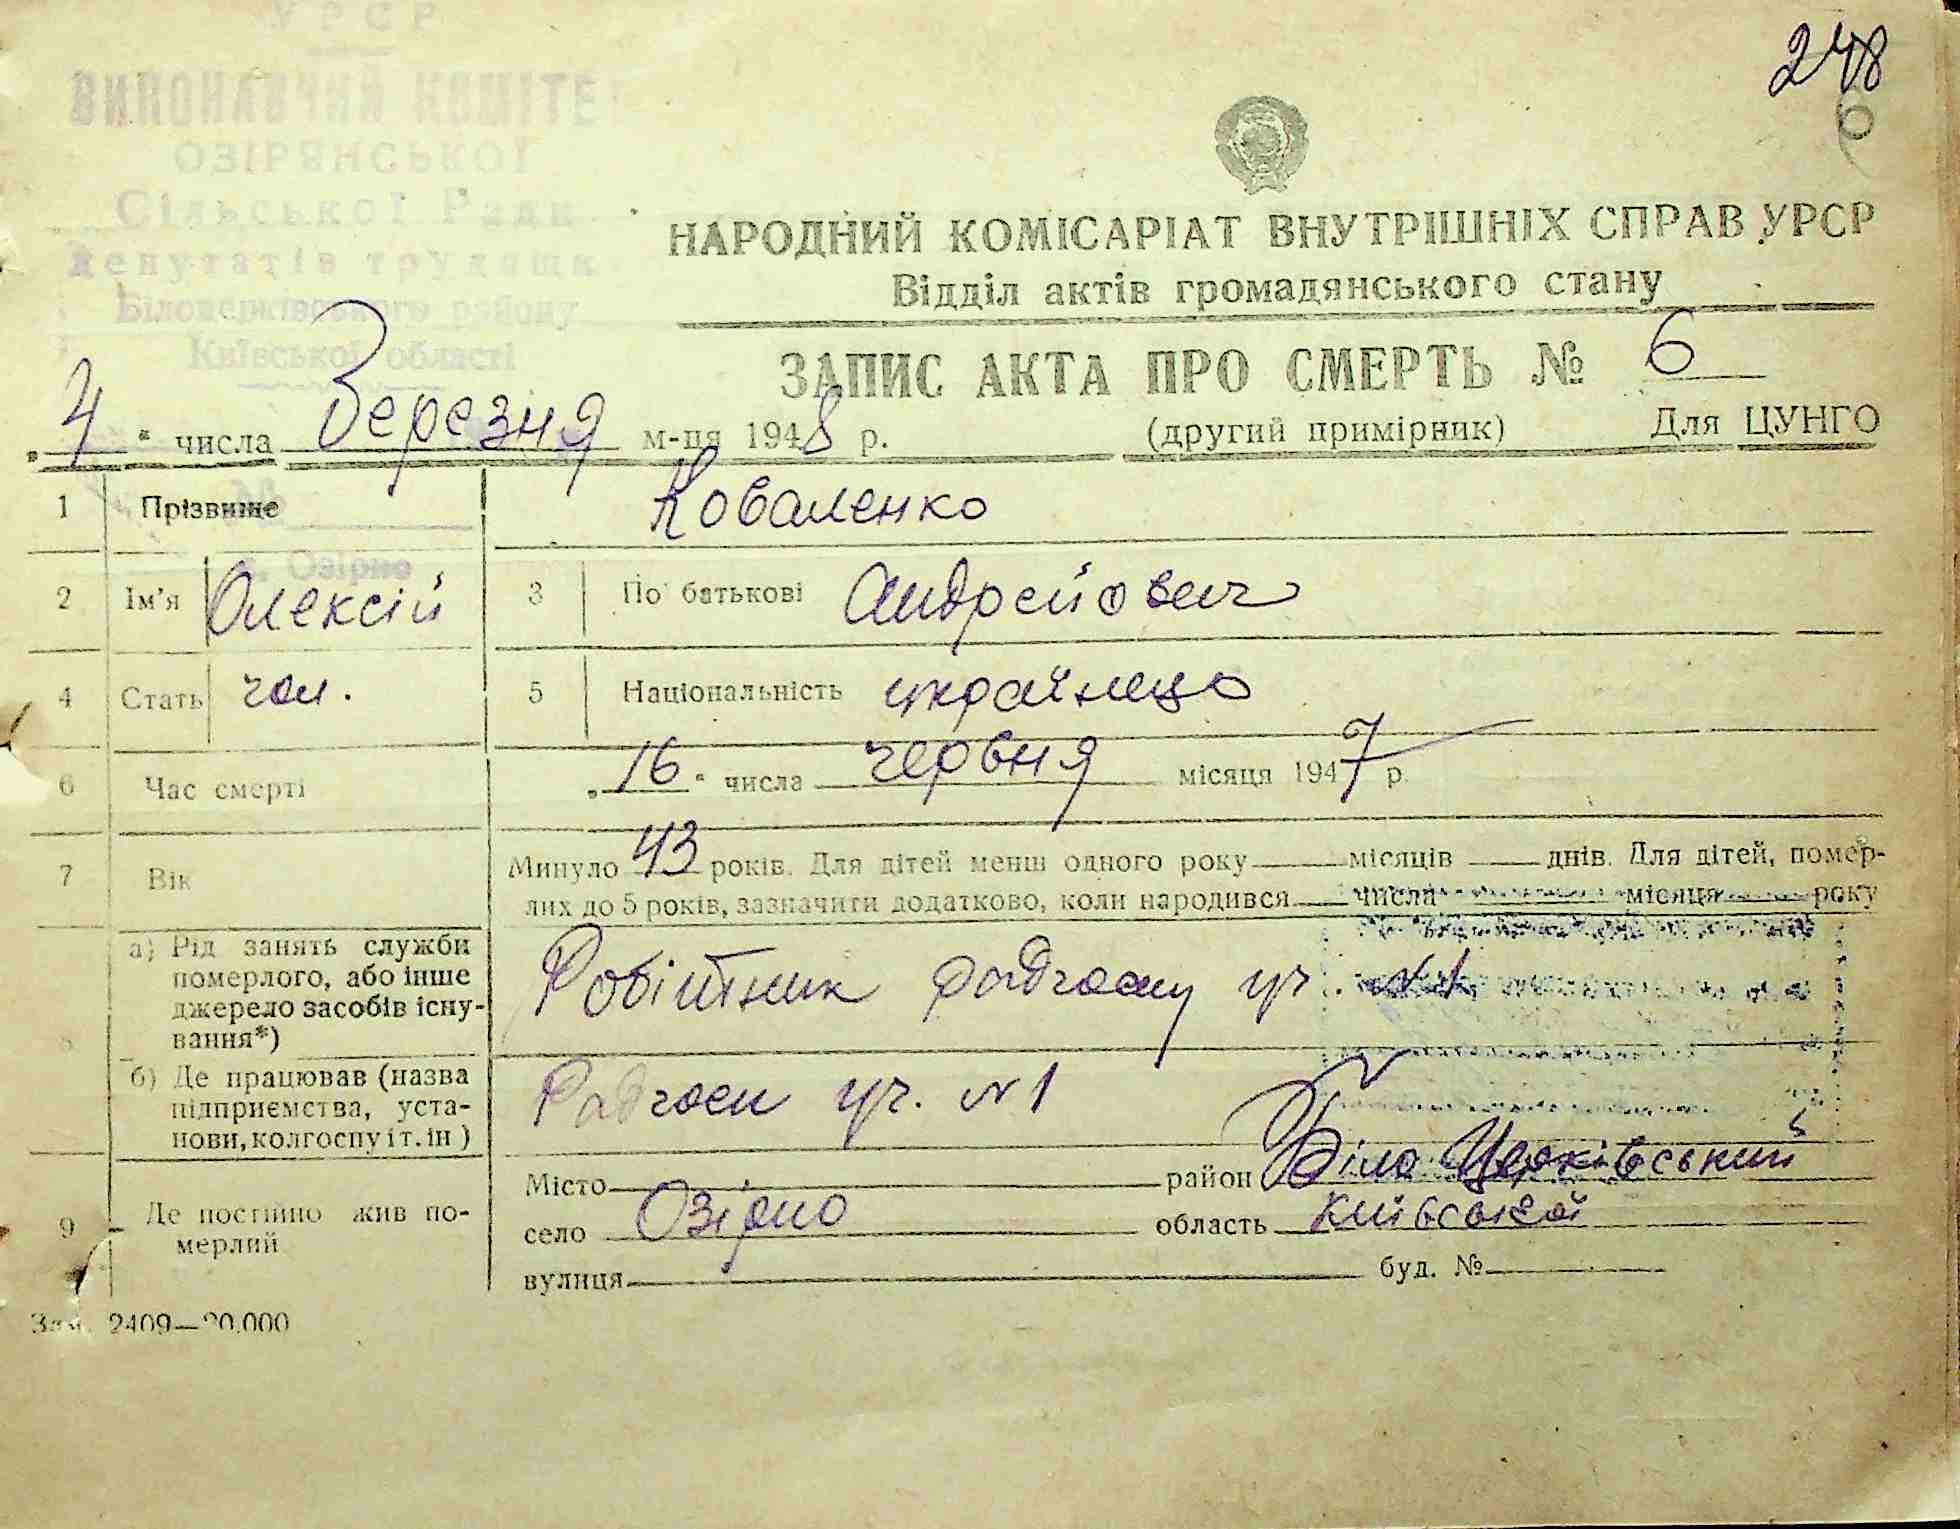 УРСР
ВИКОНАВЧИЙ КОМІТЕ
ОЗІРЯНСЬКОЇ
Сільської Ради
депутатів трудящи
Білоцерківського району
Київської області
с. Озірно
248
6
НАРОДНИЙ КОМІСАРІАТ ВНУТРІШНІХ СПРАВ УРСР
Відділ актів громадянського стану
ЗАПИС АКТА ПРО СМЕРТЬ № 6
„4" числа Березня м-ця 1948 р. (другий примірник) Для ЦУНГО
1 Прізвище Коваленко
2 Ім'я Олексій 3 По батькові Андрейович
4 Стать чол. 5 Національність українець
6 Час смерті „16" числа червня місяця 1947 р.
7 Вік Минуло 43 років. Для дітей менш одного року місяців днів. Для дітей, помер-
лих до 5 років, зазначити додатково, коли народився числа місяця року
8 а) Рід занять служби
померлого, або інше
джерело засобів існу-
вання*) Робітник радгоспу уч. №1
б) Де працював (назва
підприємства, уста-
нови, колгоспу і т. ін) Радгосп уч. №1
9 Де постійно жив по-
мерлий
Місто район Біло Церківський
село Озірно область Київської
вулиця буд. №
Зам. 2409—20.000